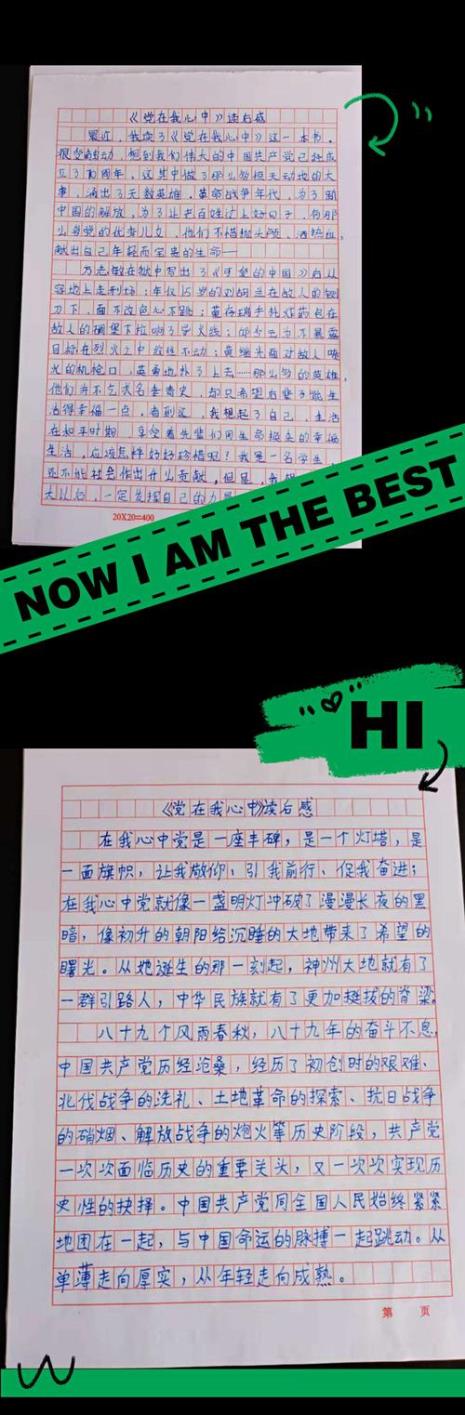 《党在我心中》读后感
最近，我读了《党在我心中》这一本书，
很受感动，想到我们伟大的中国共产党已经成
立了
周年，这其中做了那么多惊天动地的大
事，涌出了无数英雄，革命战争年代，为了新
中国的解放，为了让老百姓过上好日子，有那
么多党的优秀儿女，他们不惜抛头颅、洒热血，
献出自己年轻而宝贵的生命——
方志敏在狱中写出了《可爱的中国》后从
容地上走刑场；年仅15岁的刘胡兰在敌人的铡
刀下，面不改色心不跳；董存瑞手托炸药包在
敌人的碉堡下拉响了导火线；邱少云为不暴露
目标在烈火之中纹丝不动；黄继光面对敌人喷
火的机枪口，英勇地扑了上去……那么多的英雄，
他们并不乞求名垂青史，却只希望后辈子能生
活得幸福一点，看到这，我想起了自己，生活
在和平时期，享受着先辈们用生命换来的幸福
生活，应该怎样好好珍惜呢？我是一名学生，
还不能社会作出什么贡献，但是，我
天以后，一定发挥自己的力量
20X20=400
NOW I AM THE BEST
HI
《党在我心中》读后感
在我心中党是一座丰碑，是一个灯塔，是
一面旗帜，让我敬仰、引我前行、促我奋进；
在我心中党就像一盏明灯冲破了漫漫长夜的黑
暗，像初升的朝阳给沉睡的大地带来了希望的
曙光。从她诞生的那一刻起，神州大地就有了
一群引路人，中华民族就有了更加挺拔的脊梁。
八十九个风雨春秋，八十九年的奋斗不息，
中国共产党历经沧桑，经历了初创时的艰难、
北伐战争的洗礼、土地革命的探索、抗日战争
的硝烟、解放战争的炮火等历史阶段，共产党
一次次面临历史的重要关头，又一次次实现历
史性的抉择。中国共产党同全国人民始终紧紧
地团在一起，与中国命运的脉搏一起跳动。从
单薄走向厚实，从年轻走向成熟。
第 页